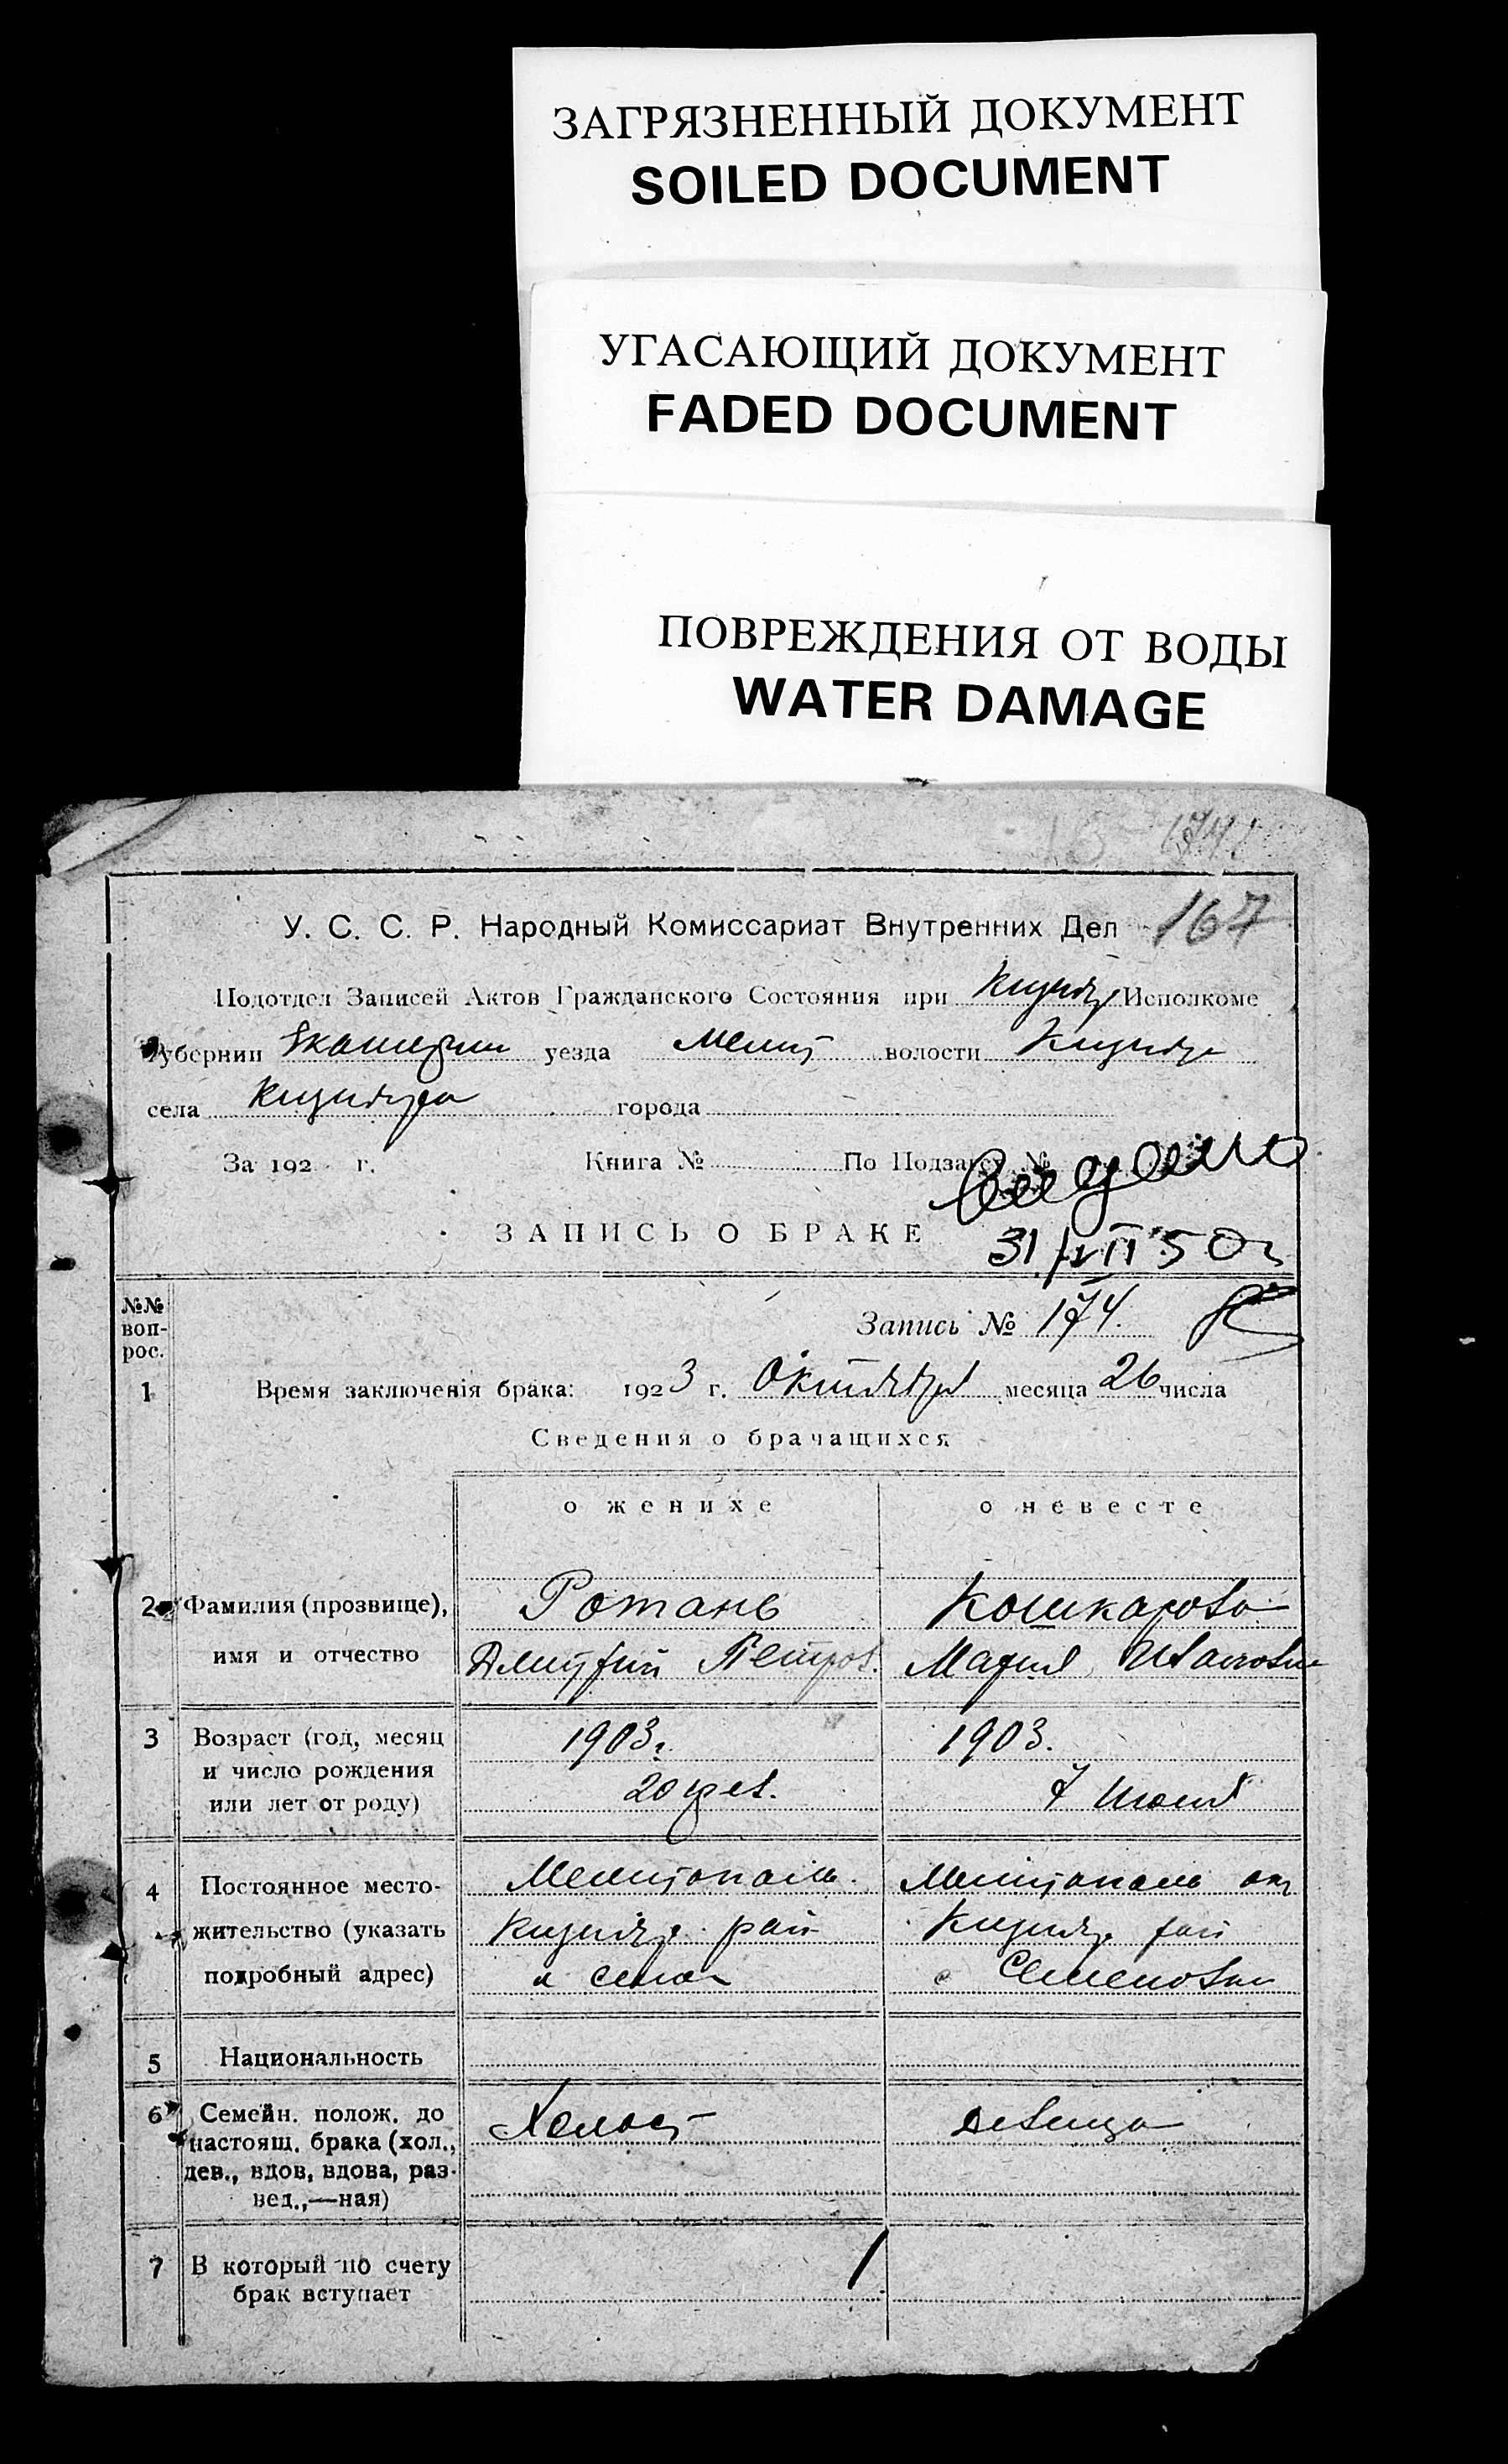 ЗАГРЯЗНЕННЫЙ ДОКУМЕНТ
SOILED DOCUMENT
УГАСАЮЩИЙ ДОКУМЕНТ
FADED DOCUMENT
ПОВРЕЖДЕНИЯ ОТ ВОДЫ
WATER DAMAGE
174
У. С. С. Р. Народный Комиссариат Внутренних Дел 167
Подотдел Записей Актов Гражданского Состояния при Кизияр Исполкоме
Губернии Екатерин уезда Мелит волости Кизияр
села Кизияра города
За 192 г. Книга № По Подзагсу №
Выдано
ЗАПИСЬ О БРАКЕ
31/VII 50г
№№ воп- рос.
Запись № 174.
1 Время заключенія брака: 1923 г. Октября месяца 26 числа
Сведения о брачащихся
о женихе о невесте
2 Фамилия (прозвище), Ротань Кошкарова
имя и отчество Дмитрий Петров. Мария Ивановна
3 Возраст (год, месяц 1903г. 1903.
и число рождения
или лет от роду) 20 фев. 7 Июня
4 Постоянное место- Мелитополь. Мелитополь окр
жительство (указать Кизияр. рай Кизияр рай
подробный адрес) и села с Семеновки
5 Национальность
6 Семейн. полож. до Холост Девица
настоящ. брака (хол.,
дев., вдов, вдова, раз-
вед.,—ная)
7 В который по счету 1
брак вступает